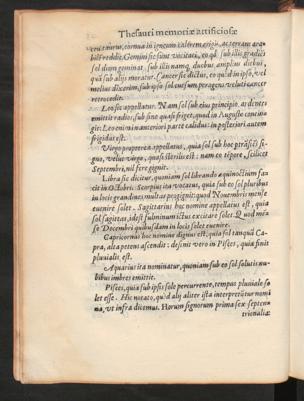 Thesauri memoriæ artificiosæ
cornua in igneum aërem erigit, ac terræ
reddit. Gemini sic sunt vocitati, eo qd sub illis gradus
sol diem geminat, sub illis namq; duobus amplius diebus,
quā sub alijs moratur. Cancer sic dictus, eo qd in ipso, vel
melius dixerim, sub ipso sol cursum peragens veluti cancer
retrocedit.
Leo sic appellatur. Nam sol sub eius principio ardentes
emittit radios, sub fine quasi friget, quod in Augusto contin
git: Leo enim in anteriori parte calidus in posteriori autem
frigidus est.
Virgo propterea appellatus, quia sol sub hoc
gnus, velut virgo, quasi sterilis est: nam eo tēpore, scilicet
Septembri, nil fere gignit.
Libra sic dicitur, quoniam sol librando æquinoctium fa-
cit in Octobri. Scorpius ita vocatus, quia sub eo sol pluribus
in locis grandines, multas propignit: quod Nouembri mense
euenire solet. Sagitarius hoc nomine appellatus est, quia
sol sagittas, idest fulminum ictus excitare solet. Quod mē-
se Decembri quibusdam in locis solet euenire.
Capricornus hoc nomine dignus est: quia sol tanquā Ca-
pra, alta petens ascendit: desinit vero in Pisces, quia finit
pluvialis est.
Aquarius ita nominatur, quoniam sub eo sol solutis nu-
bibus imbres emittit.
Pisces, quia sub ipsis sole percurrente, tempus pluuiale so
let esse. His notato, qd alij aliter ista interpretātur nomi
na, vt infra dicemus. Horum signorum prima sex septen
trionalia